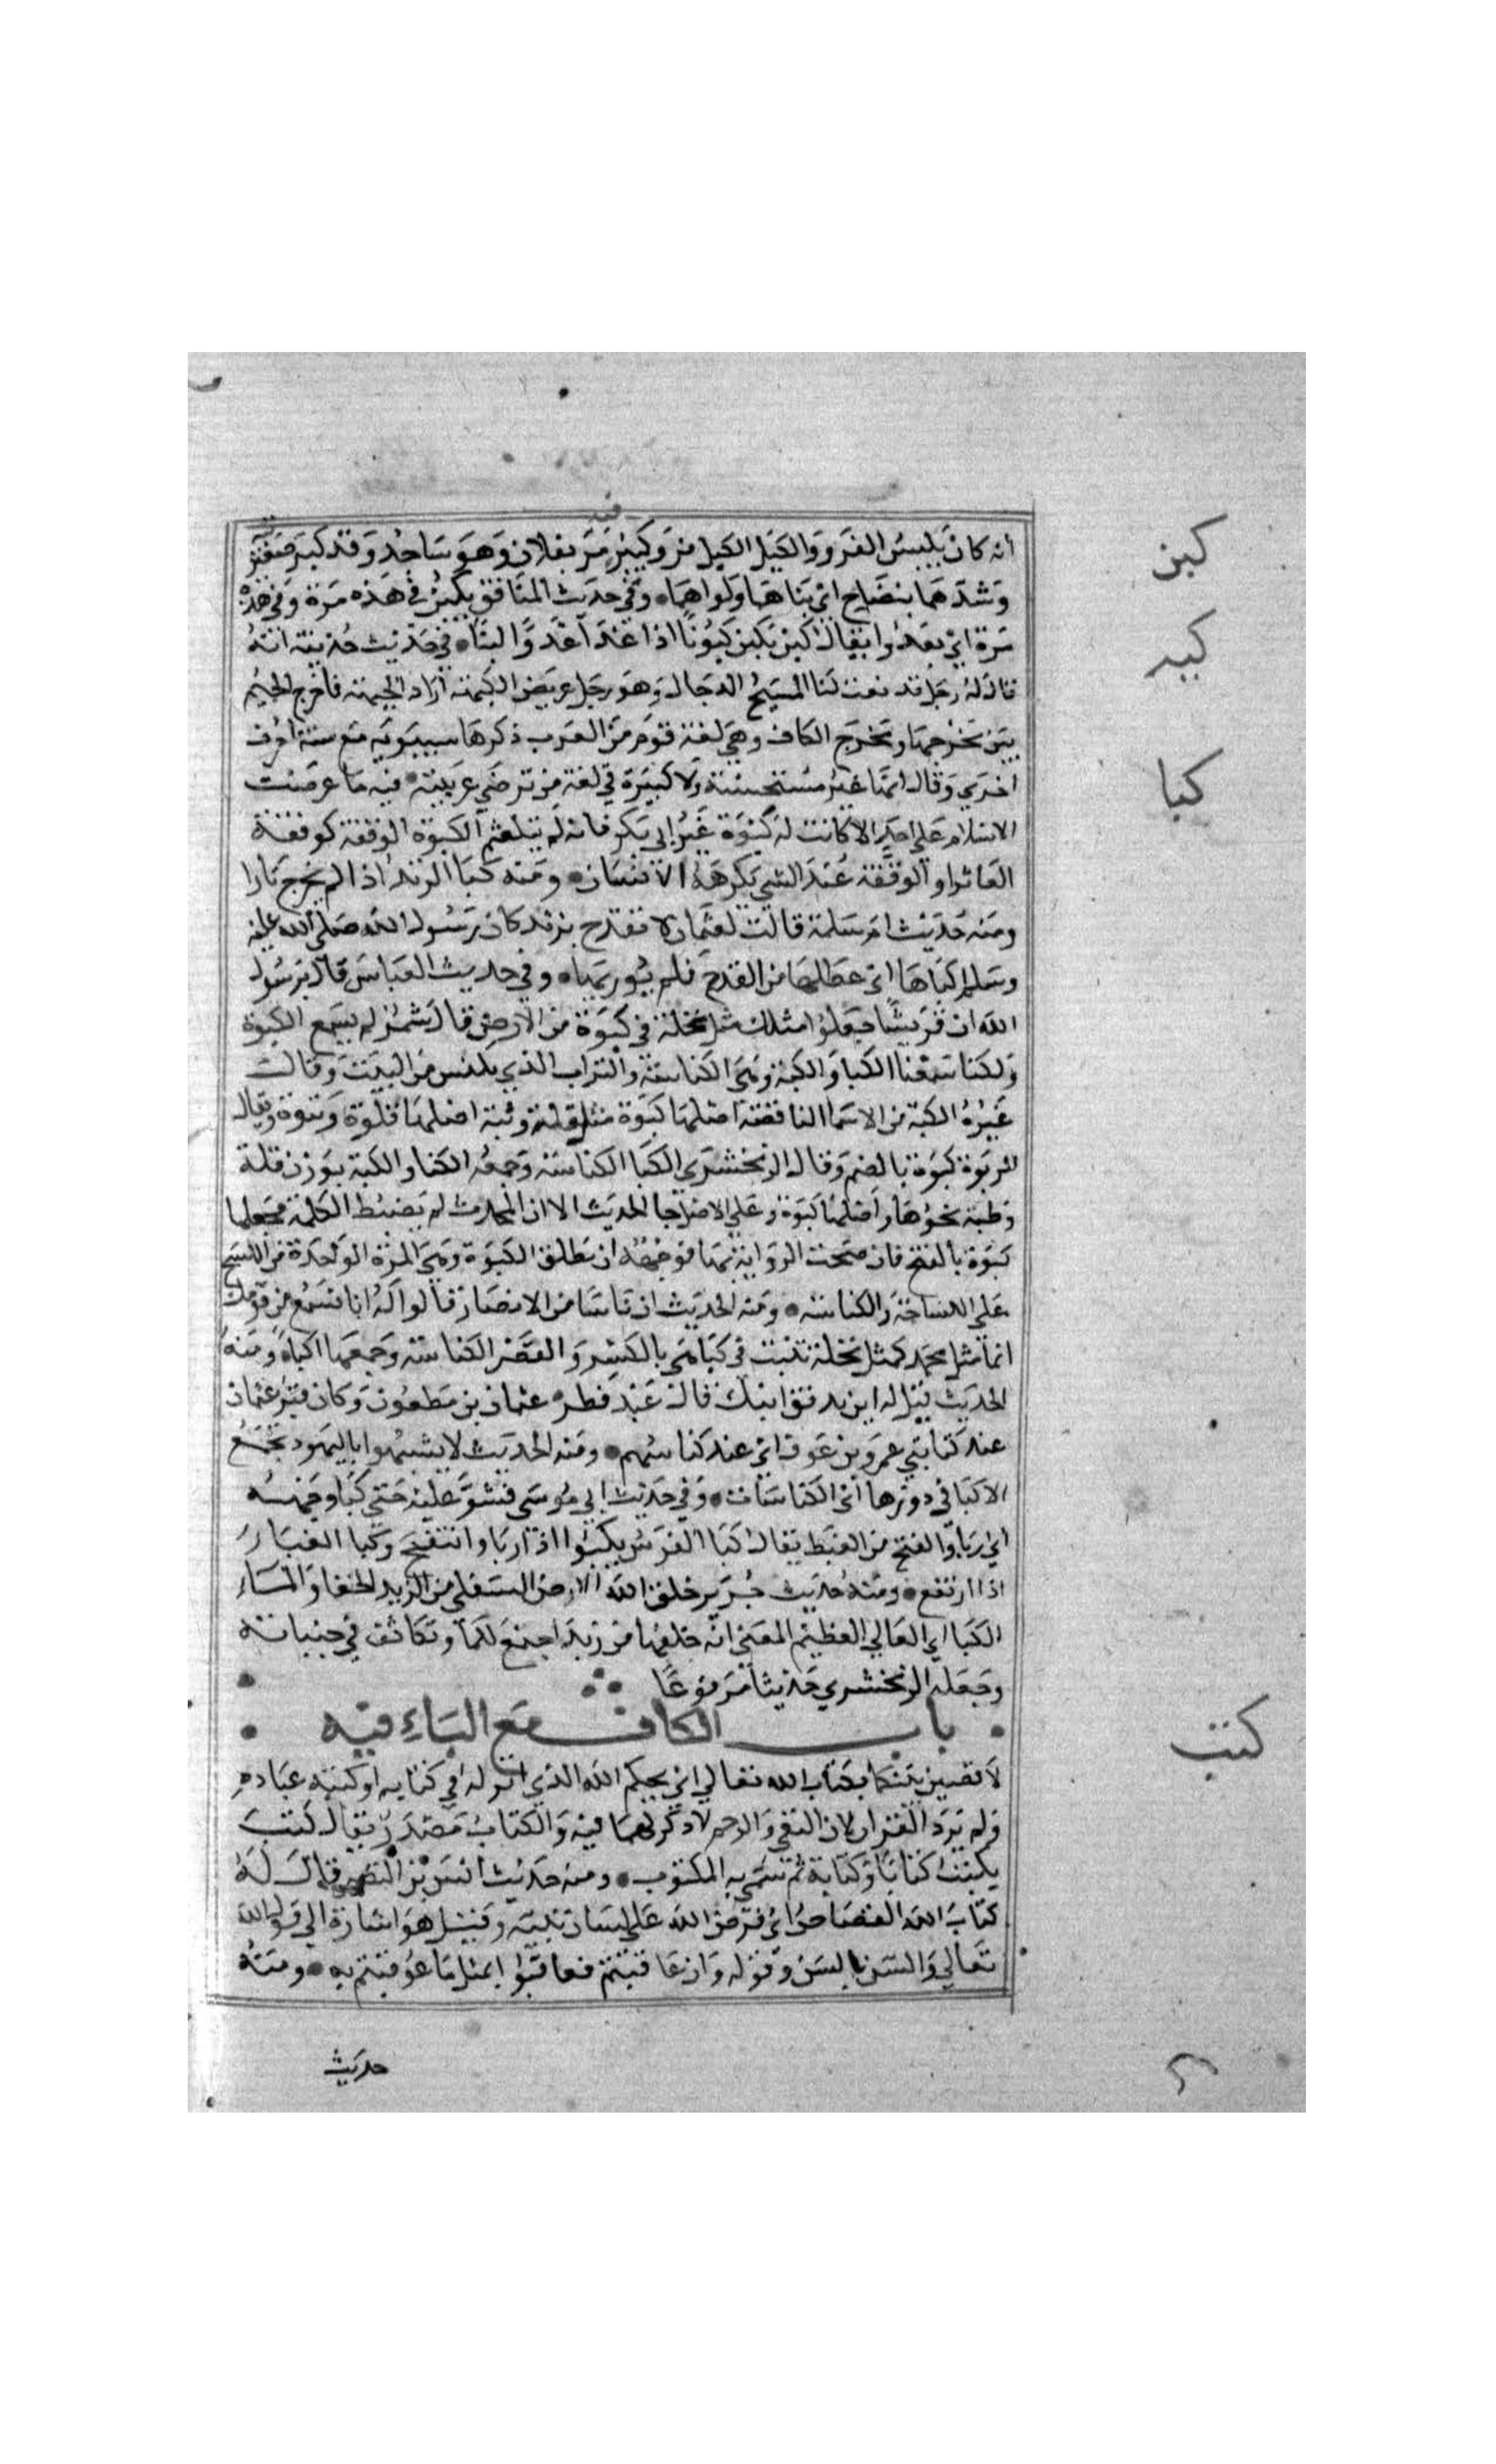 فيه
انه كان يلبس الفرو والكبل الكبل فرو كبير مر بفلان وهو ساجد وقد كبن ضفيرتيه
وشدهما بنضاح اي ثناهما ولواهما وفي حديث المنافق يكبن في هذه مرة وفي هذه
مرة اي يعدوا يقال كبن يكبن كبونا اذا عدا عدوا لينا في حديث حذيفة انه
قال له رجل قد نعت لنا المسيح الدجال وهو رجل عريض الكبهة اراد الجبهة فاخرج الجيم
بين مخرجها ومخرج الكاف وهي لغة قوم من العرب ذكرها سيبويه مع ستة احرف
اخري وقال انها غير مستحسنة ولا كبيرة في لغة من ترضي عربيته فيه ما عرضت
الاسلام علي احد الا كانت له كبوة غير ابي بكر فانه لم يتلعثم الكبوة الوقفة كوقفة
العاثر او الوقفة عند الشي يكرهه الانسان ومنه كبا الزند اذا لم يخرج نارا
ومنه حديث ام سلمة قالت لعثمان لا تقدح بزند كان رسول الله صلي الله عليه
وسلم اكباها اي عطلها من القدح فلم يور بها وفي حديث العباس قال يرسول
الله ان قريشا جعلوا مثلك مثل نخلة في كبوة من الارض قال شمر لم يسمع الكبوة
ولكنا سمعنا الكبا والكبة وهي الكناسة والتراب الذي يكنس من البيت وقالت
غيره الكبة من الاسما الناقصة اصلها كبوة مثل قلة وثبة اصلهما قلوة وثبوة ويقال
للربوة كبوة بالضم وقال الزمخشري الكبا الكناسة وجمعه الكبا والكبة بوزن قلة
وظبة نحوها واصلها كبوة وعلي الاصل جا الحديث الا ان المحدث لم يضبط الكلمة فجعلها
كبوة بالفتح فان صحت الرواية بها فوجهه ان تطلق الكبوة وهي المرة الواحدة من الكسح
علي الكساحة والكناسة ومنه الحديث ان ناسا من الانصار قالوا له انا نسمع من قومك
انما مثل محمد كمثل نخلة تنبت في كبا هي بالكسر والقصر الكناسة وجمعها اكباء ومنه
الحديث قيل له اين يدفن ابنك قال عند فطر عثمان بن مظعون وكان قبر عثمان
عند كبا بني عمرو بن عوف اي عند كناستهم ومنه الحديث لا يشبهوا باليهود تجمع
الاكبا في دورها اي الكناسات وفي حديث ابي موسي فشق عليه حتي كبا وجهه
اي ربا وانتفخ من الغيظ يقال كبا الفرس يكبوا اذا ربا وانتفخ وكبا الغبار
اذا ارتفع ومنه حديث جرير خلق الله الارض السفلي من الزبد الجفا والماء
الكبا اي العالي العظيم المعني انه خلقها من زبد اجتمع للماء وتكاثف في جنباته
وجعله الزمخشري حديثا مرفوعا
باب الكاف مع التاء فيه
لاقضين بينكما بكتاب الله تعالي اي بحكم الله الذي انزله في كتابه او كتبه علي عباده
ولم يرد القران لان النفي والرجم لا ذكر لهما فيه والكتاب مصدر يقال كتب
يكتب كتابا وكتابة ثم سمي به المكتوب ومنه حديث انس بن النضر قال له
كتاب الله القصاص اي فرض الله علي لسان نبيه وقيل هو اشارة الي قول الله
تعالي والسن بالسن وقوله وان عاقبتم فعاقبوا بمثل ما عوقبتم به ومنه
حديث
كبن
كبه
كبا
كتب